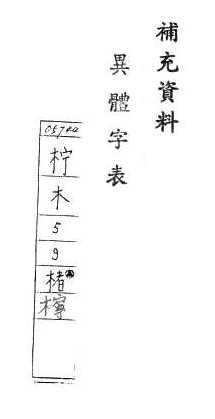 補充資料
異體字表
柠
木
5
9
楮
檸